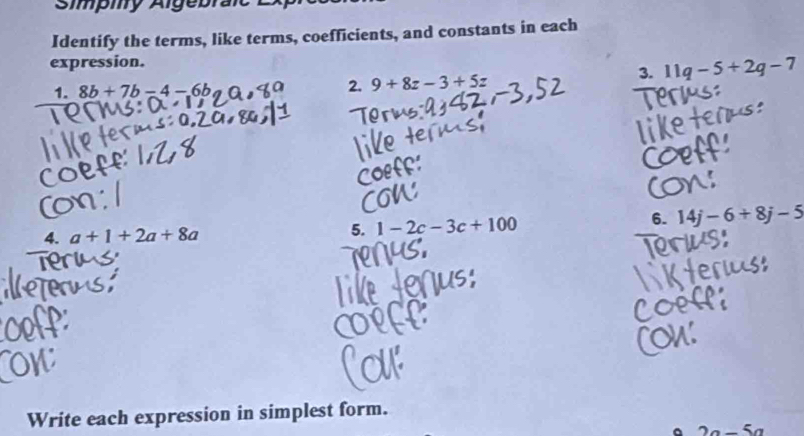 Simplify Algebraic
Identify the terms, like terms, coefficients, and constants in each
expression.
1. 8b + 7b - 4 - 6b 2a, 8a
Terms: a, 1,
like terms: a, 2a, 8a, 1
coeff: 1, 2, 8
con: 1
2. 9 + 8z - 3 + 5z
Terms: 9, 82, -3, 52
like terms:
coeff:
con:
3. 11q - 5 + 2q - 7
Terms:
like terms:
coeff:
con:
4. a + 1 + 2a + 8a
Terms:
likeTerms:
coeff:
con:
5. 1 - 2c - 3c + 100
Terms:
like terms:
coeff:
con:
6. 14j - 6 + 8j - 5
Terms:
likterms:
coeff:
con:
Write each expression in simplest form.
9 2a - 5a